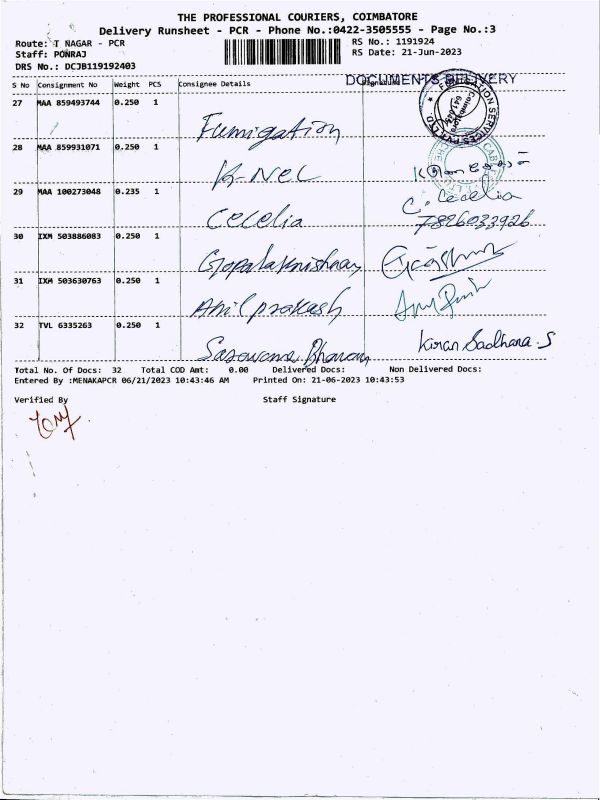 THE PROFESSIONAL COURIERS, COIMBATORE
Delivery Runsheet - PCR - Phone No.:0422-3505555 - Page No.:3
Route: T NAGAR - PCR
RS No.: 1191924
Staff: PONRAJ
RS Date: 21-Jun-2023
DRS No.: DCJB119192403
DOCUMENTS DELIVERY
S No Consignment No Weight PCS Consignee Details Signature
27 MAA 859493744 0.250 1
Fumigation
28 MAA 859931071 0.250 1
K-NEC
29 MAA 100273048 0.235 1
Cecelia C. Cecelia
7826033926
30 IXM 503886083 0.250 1
Gopalakrishnan
31 IXM 503630763 0.250 1
Anil prakash
32 TVL 6335263 0.250 1
Saravana Bhavan Kiran Sadhana.S
Total No. Of Docs: 32 Total COD Amt: 0.00 Delivered Docs: Non Delivered Docs:
Entered By :MENAKAPCR 06/21/2023 10:43:46 AM Printed On: 21-06-2023 10:43:53
Verified By Staff Signature